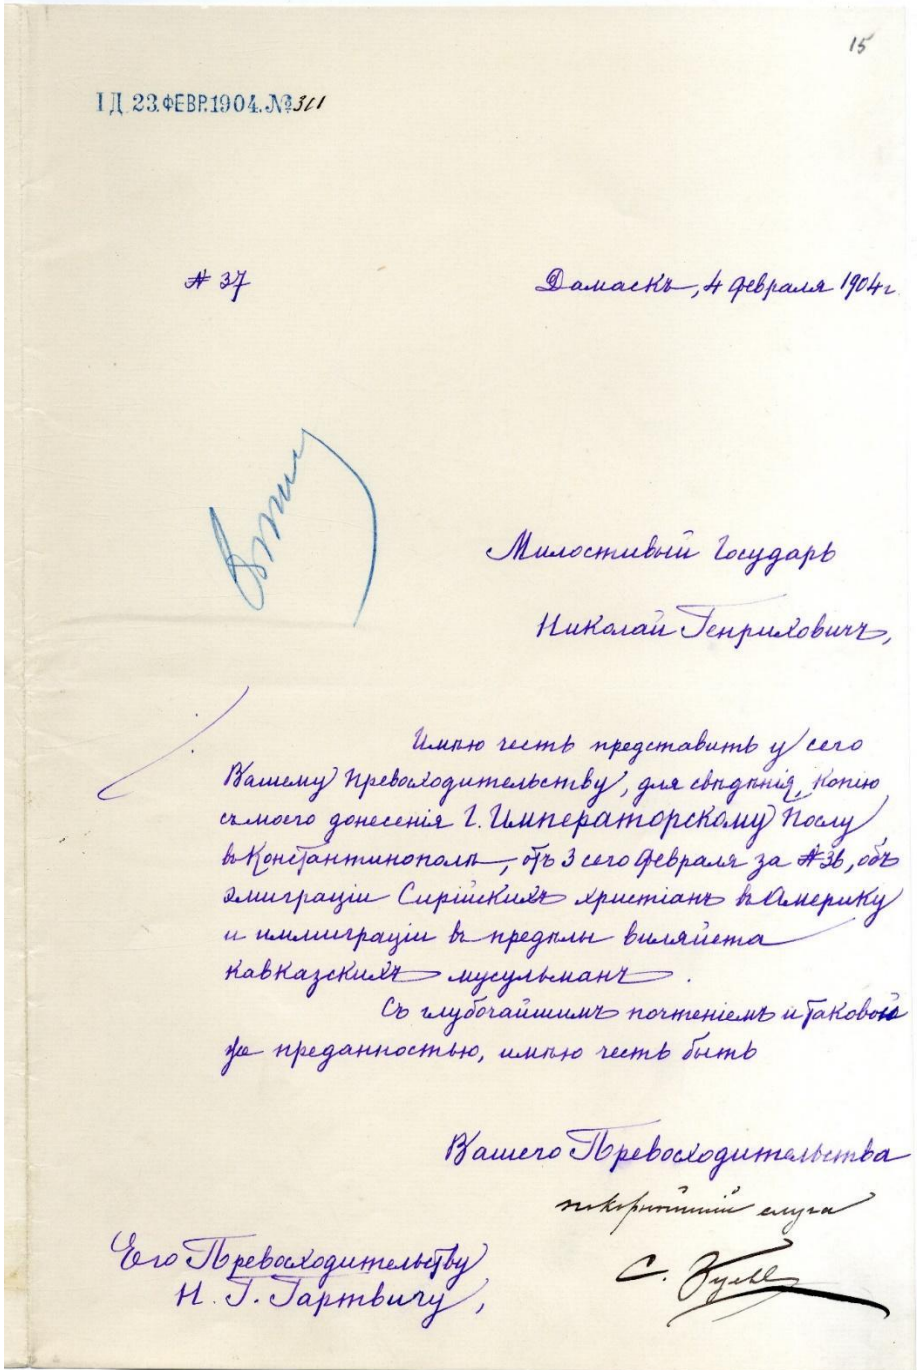 15
I Д. 23.ФЕВР.1904.№311
№ 37
Дамаскъ, 4 февраля 1904 г.
Милостивый Государь
Николай Генриховичъ,
Имѣю честь представить у сего
Вашему Превосходительству, для свѣдѣнія, копію
съ моего донесенія Г. Императорскому Послу
въ Константинополѣ, отъ 3 сего февраля за № 36, объ
эмиграціи Сирійскихъ христіанъ въ Америку
и иммиграціи въ предѣлы виляйета
кавказскихъ мусульманъ.
Съ глубочайшимъ почтеніемъ и таковой
же преданностью, имѣю честь быть
Вашего Превосходительства
покорнѣйшій слуга
С.
Его Превосходительству
Н. Г. Гартвичу,